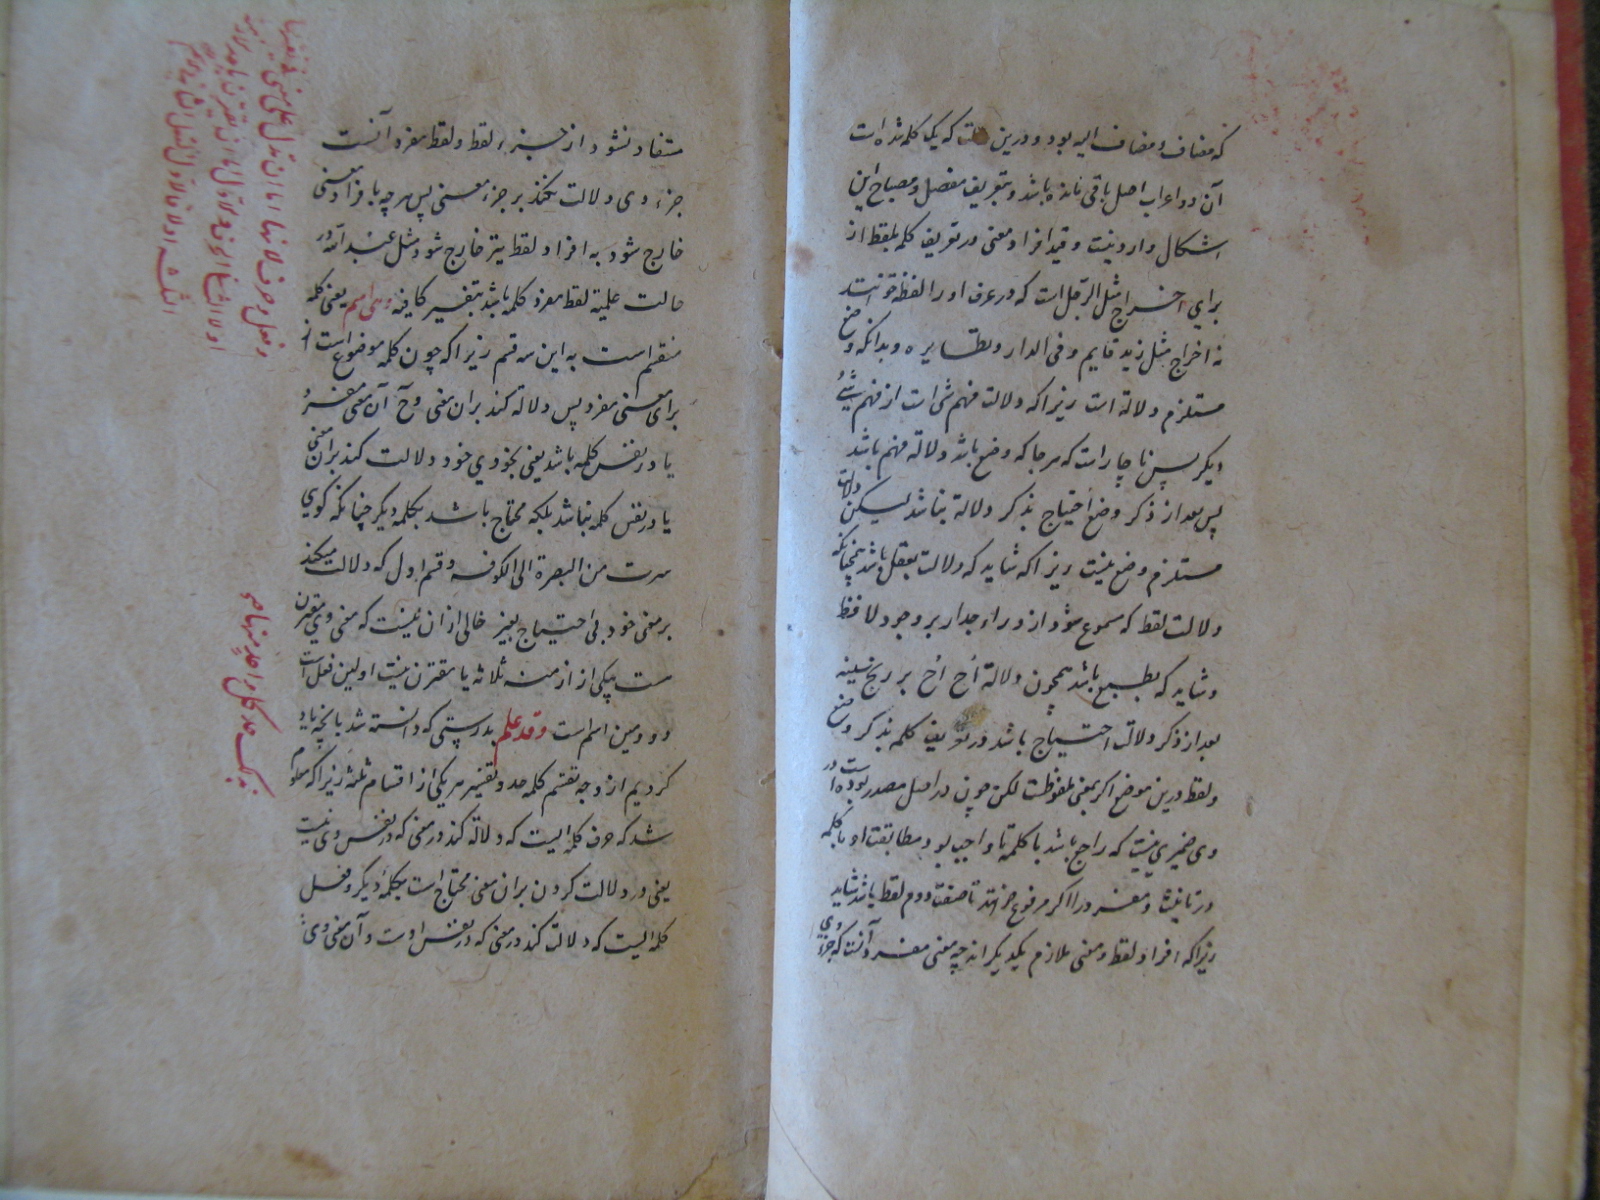 که مضاف و مضاف الیه بود و درین حالت که یک کلمه شده است
آن دو اعراب اصل باقی مانده باشد و بتعریف مفصل و مصباح این
اشکال وارد نیست و قید افراد معنی در تعریف کلمه بلفظ از
برای اخراج مثل الرجل است که در عرف او را لفظ خوانند
نه اخراج مثل زید قایم و فی الدار و نظایره و بدانکه وضع
مستلزم دلالة است زیرا که دلالت فهم شی است از فهم شیئ
دیگر پس ناچار است که هر جا که وضع باشد دلالة فهم باشد
پس بعد از ذکر وضع احتیاج بذکر دلالة نباشد لیکن دلالت
مستلزم وضع نیست زیرا که شاید که دلالت بعقل باشد همچنانکه
دلالت لفظ که مسموع شود از وراء جدار بر وجود لافظ
و شاید که بطبع باشد همچون دلالة اُح اُح بر رنج سینه
بعد از ذکر دلالت احتیاج باشد در تعریف کلمه بذکر وضع
و لفظ درین موضع اگر بمعنی ملفوظست لکن چون در اصل مصدر بوده است و در
وی ضمیری نیست که راجع باشد با کلمة تا واجب بود مطابقت او با کلمه
در تانیث و مفرد را اگر مرفوع خوانند تا صفت دوم لفظ باشد شاید
زیرا که افراد لفظ و معنی ملازم یکدیگراند چه معنی مفرد آنست که جزء وی
مستفاد نشود از جزء لفظ و لفظ مفرد آنست
جزء وی دلالت نکند بر جزء معنی پس هر چه بافراد معنی
خارج شود به افراد لفظ نیز خارج شود مثل عبد الله در
حالت علمیة لفظ مفرد کلمه باشد بتفسیر کافیه وهی اسم یعنی کلمه
منقسم است به این سه قسم زیرا که چون کلمه موضوع است از
برای معنی مفرد پس دلالة کند بران معنی وح آن معنی مفرد
یا در نفس کلمه باشد یعنی بخودی خود دلالت کند بران معنی
یا در نفس کلمه نباشد بلکه محتاج باشد بکلمه دیگر چنانکه گوی
سرت من البصرة الی الکوفه و قسم اول که دلالت میکند
بر معنی خود بی احتیاج بغیر خالی از ان نیست که معنی وی مقترن
ست بیکی از ازمنه ثلاثه یا مقترن نیست اولین فعل است
و دومین اسم است وقد علم بدرستی که دانسته شد بانچه یاد
کردیم از وجه تقسیم کلمه حد و تفسیر هر یکی از اقسام ثلثه زیرا که معلوم
شد که حرف کلمه ایست که دلالة کند در معنی که در نفس وی نیست
یعنی در دلالت کردن بران معنی محتاج است بکلمهٔ دیگر و فعل
کلمه ایست که دلالت کند در معنی که در نفس اوست و آن معنی وی
و فعل و حرف لانها اما ان تدل علی معنی فی نفسها
او لا الثانی الحرف والاول اما ان یقترن باحد
الثلثه اولا فالاول الفعل الثانی الاسم
بذلک حد کل واحد منها